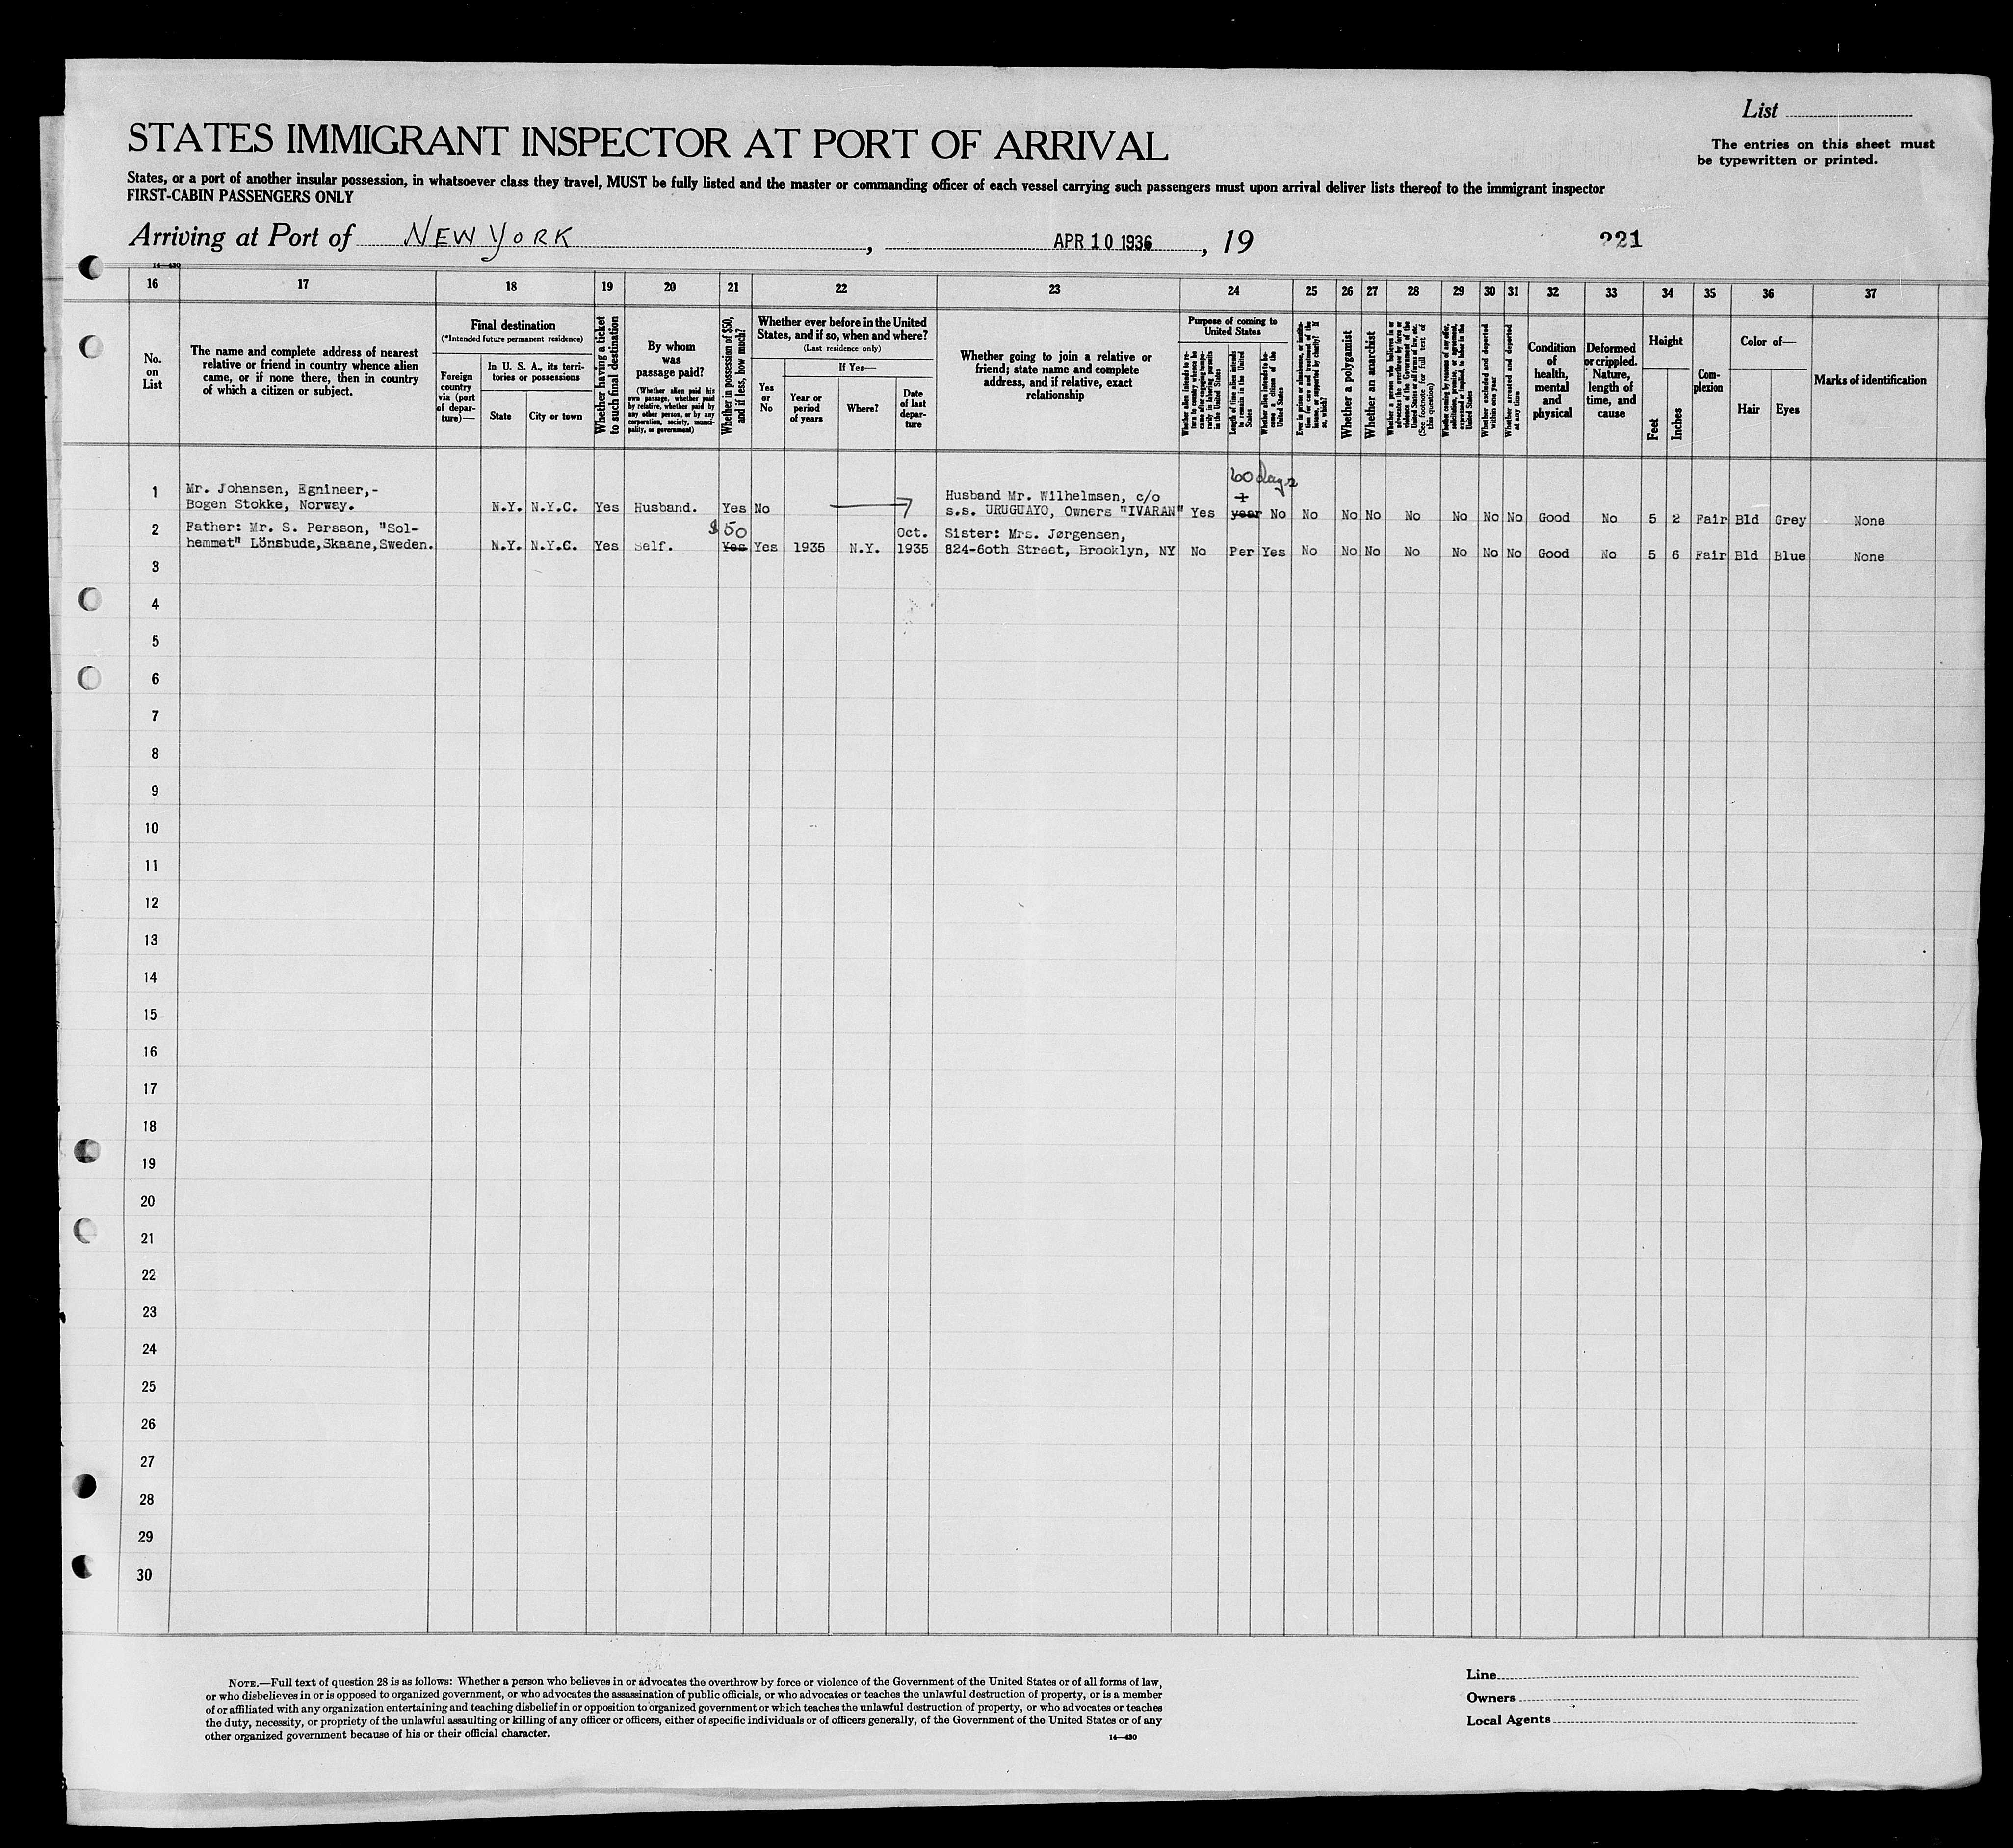 List
The entries on this sheet must
be typewritten or printed.
STATES IMMIGRANT INSPECTOR AT PORT OF ARRIVAL
States, or a port of another insular possession, in whatsoever class they travel, MUST be fully listed and the master or commanding officer of each vessel carrying such passengers must upon arrival deliver lists thereof to the immigrant inspector
FIRST-CABIN PASSENGERS ONLY
Arriving at Port of NEW YORK, APR 10 1936, 19
221
14—430
16 17 18 19 20 21 22 23 24 25 26 27 28 29 30 31 32 33 34 35 36 37
No.
on
List
The name and complete address of nearest
relative or friend in country whence alien
came, or if none there, then in country
of which a citizen or subject.
Final destination
(*Intended future permanent residence)
Foreign
country
via (port
of depar-
ture)—
In U. S. A., its terri-
tories or possessions
State
City or town
Whether having a ticket
to such final destination
By whom
was
passage paid?
(Whether alien paid his
own passage, whether paid
by relative, whether paid by
any other person, or by any
corporation, society, munici-
pality, or government)
Whether in possession of $50,
and if less, how much?
Whether ever before in the United
States, and if so, when and where?
(Last residence only)
Yes
or
No
If Yes—
Year or
period
of years
Where?
Date
of last
depar-
ture
Whether going to join a relative or
friend; state name and complete
address, and if relative, exact
relationship
Purpose of coming to
United States
Whether alien intends to re-
turn to country whence he
came after engaging tempo-
rarily in laboring pursuits
in the United States
Length of time alien intends
to remain in the United
States
Whether alien intends to be-
come a citizen of the
United States
Ever in prison or almshouse, or institu-
tion for care and treatment of the
insane, or supported by charity? If
so, which?
Whether a polygamist
Whether an anarchist
Whether a person who believes in or
advocates the overthrow by force or
violence of the Government of the
United States or of all forms of law, etc.
(See footnote for full text of
this question)
Whether coming by reason of any offer,
solicitation, promise, or agreement,
expressed or implied, to labor in the
United States
Whether excluded and deported
within one year
Whether arrested and deported
at any time
Condition
of
health,
mental
and
physical
Deformed
or crippled.
Nature,
length of
time, and
cause
Height
Feet
Inches
Com-
plexion
Color of—
Hair
Eyes
Marks of identification
60 Days
1 Mr. Johansen, Egnineer,- Husband Mr. Wilhelmsen, c/o 1
Bogen Stokke, Norway. N.Y. N.Y.C. Yes Husband. Yes No s.s. URUGUAYO, Owners "IVARAN" Yes year No No No No No No No No Good No 5 2 Fair Bld Grey None
2 Father: Mr. S. Persson, "Sol- $50 Oct. Sister: Mrs. Jørgensen,
hemmet" Lönsbuda,Skaane,Sweden. N.Y. N.Y.C. Yes Self. Yes Yes 1935 N.Y. 1935 824-6oth Street, Brooklyn, NY No Per Yes No No No No No No No Good No 5 6 Fair Bld Blue None
3
4
5
6
7
8
9
10
11
12
13
14
15
16
17
18
19
20
21
22
23
24
25
26
27
28
29
30
NOTE.—Full text of question 28 is as follows: Whether a person who believes in or advocates the overthrow by force or violence of the Government of the United States or of all forms of law,
or who disbelieves in or is opposed to organized government, or who advocates the assassination of public officials, or who advocates or teaches the unlawful destruction of property, or is a member
of or affiliated with any organization entertaining and teaching disbelief in or opposition to organized government or which teaches the unlawful destruction of property, or who advocates or teaches
the duty, necessity, or propriety of the unlawful assaulting or killing of any officer or officers, either of specific individuals or of officers generally, of the Government of the United States or of any
other organized government because of his or their official character.
14—430
Line
Owners
Local Agents